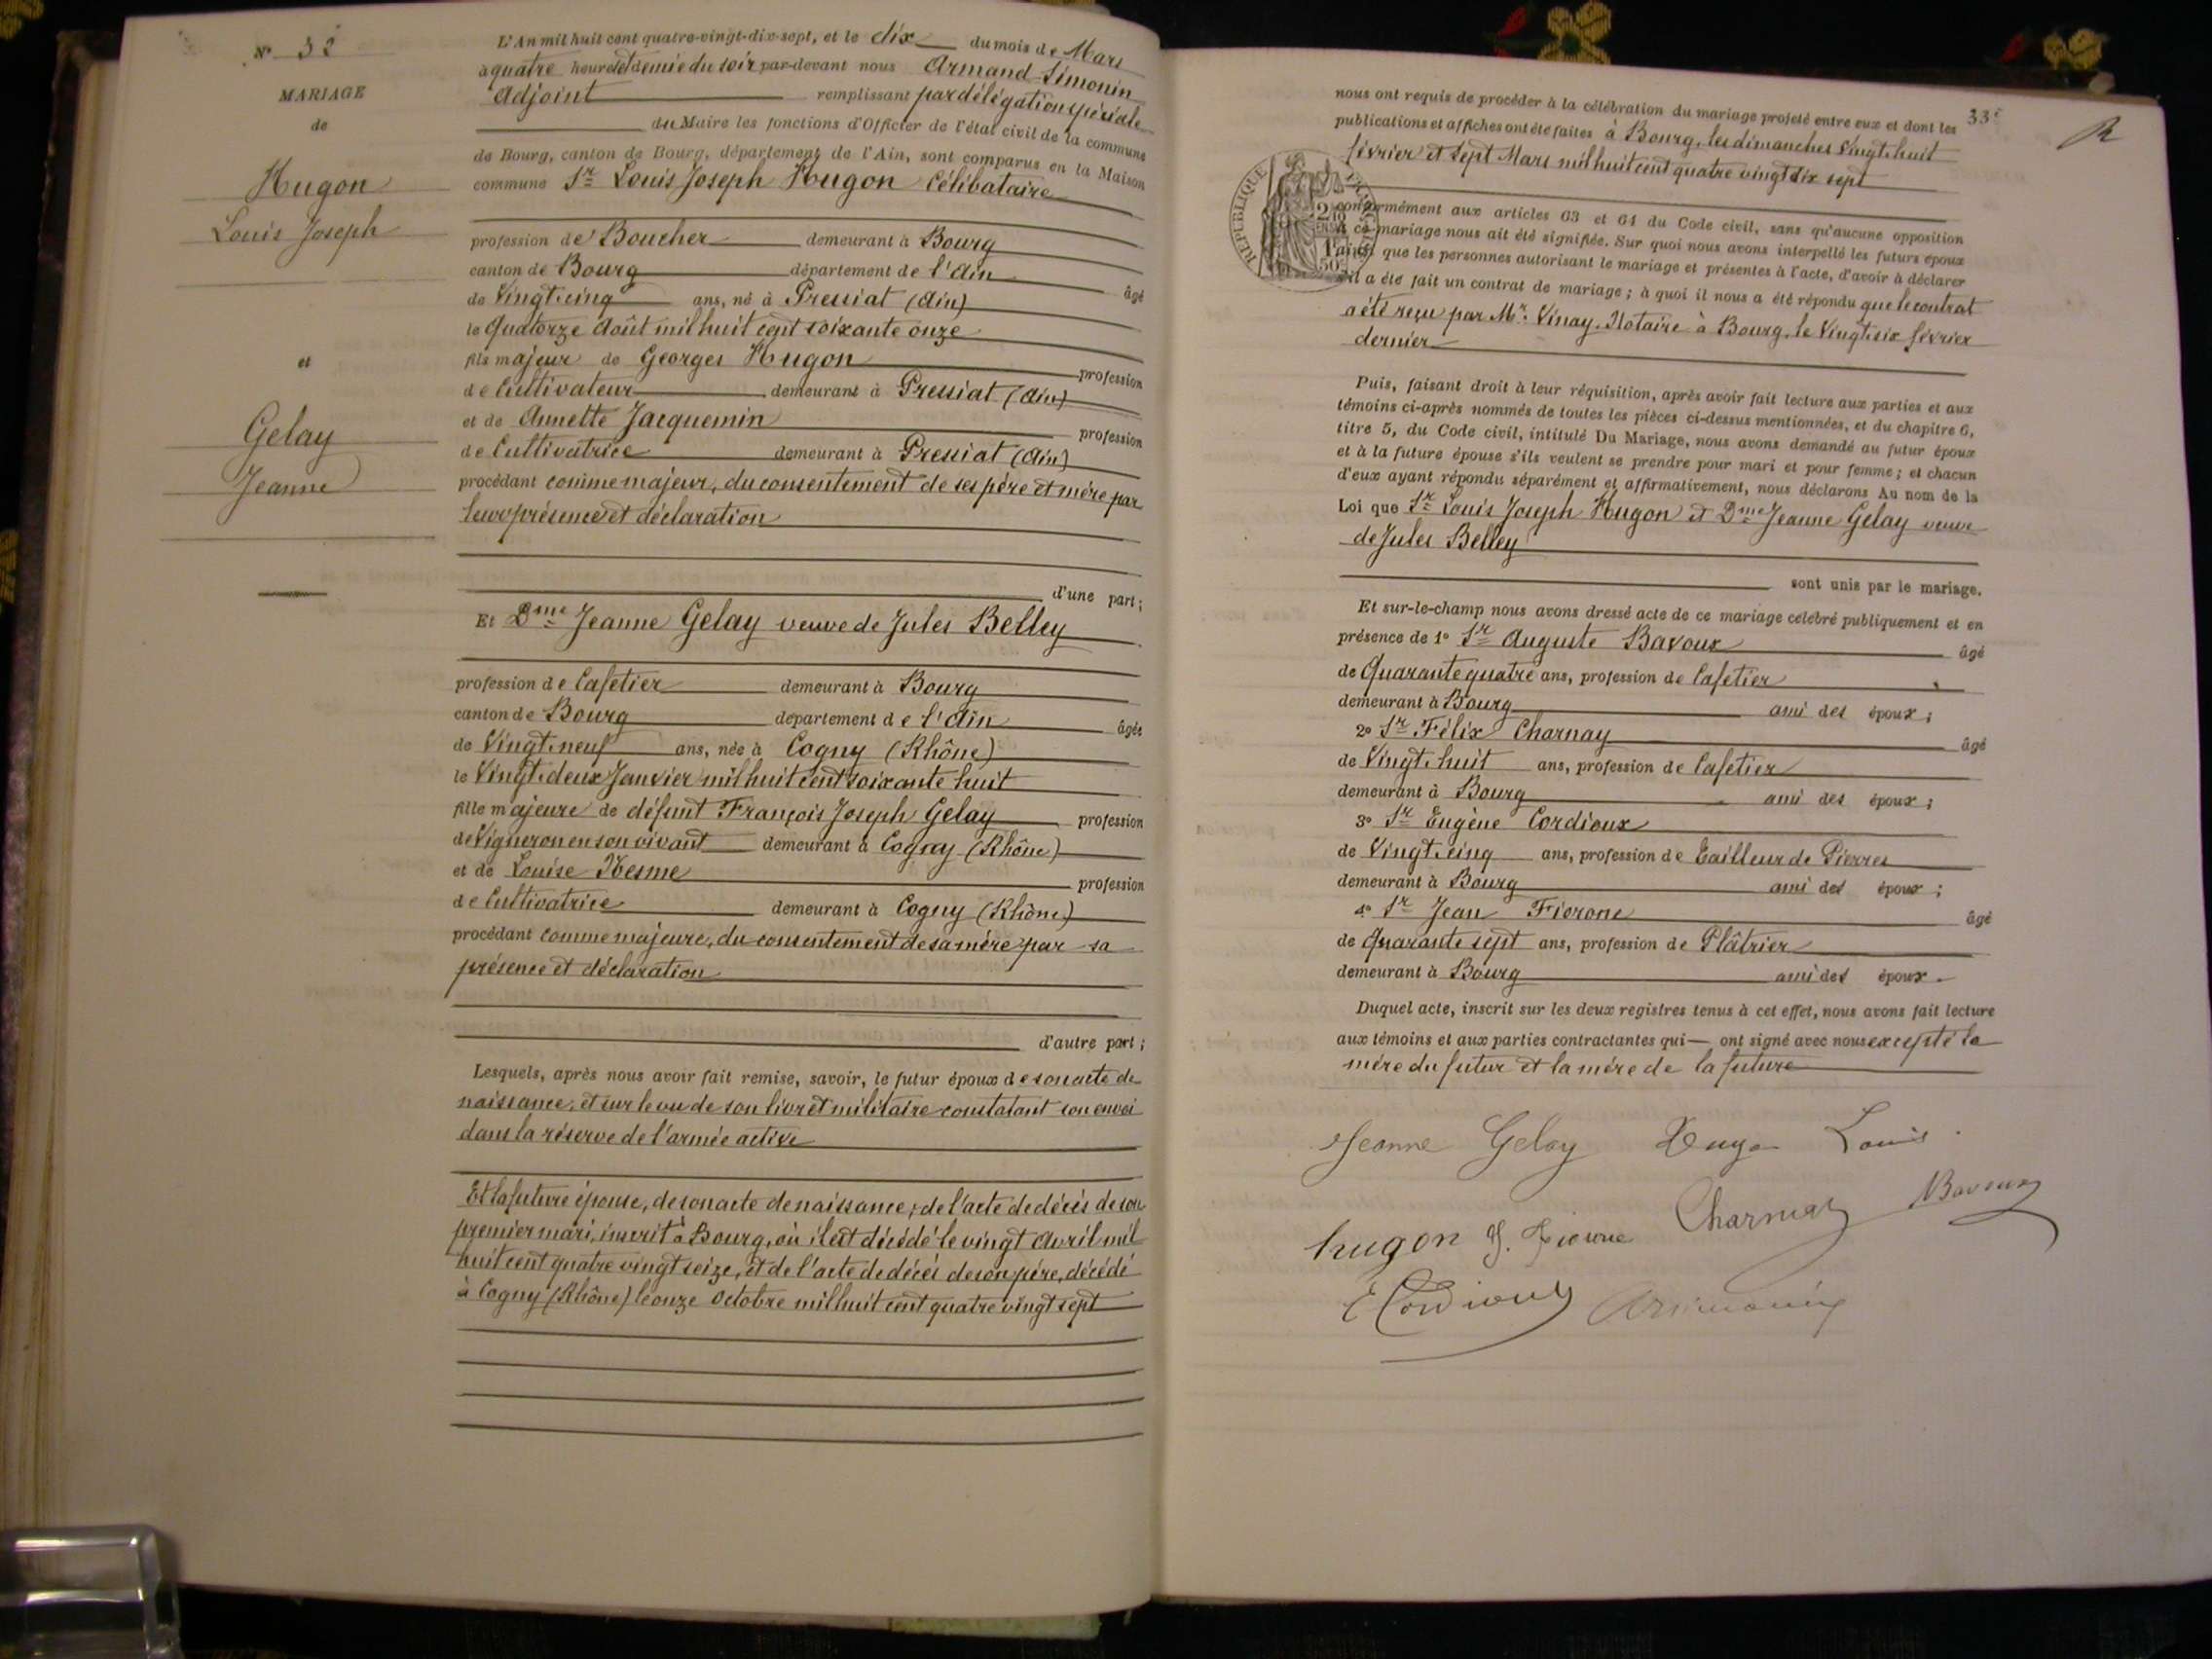 N° 32
MARIAGE
de
Hugon
Louis Joseph
et
Gelay
Jeanne
L'An mil huit cent quatre-vingt-dix-sept, et le dix du mois de Mars
à quatre heures et demie du soir par-devant nous Armand Simonin
Adjoint remplissant par délégation spéciale
du Maire les fonctions d'Officier de l'état civil de la commune
de Bourg, canton de Bourg, département de l'Ain, sont comparus en la Maison
commune Sr Louis Joseph Hugon Célibataire
profession de Boucher demeurant à Bourg
canton de Bourg département de l'Ain âgé
de Vingt-cinq ans, né à Pressiat (Ain)
le Quatorze Août mil huit cent soixante onze
fils majeur de Georges Hugon profession
de Cultivateur demeurant à Pressiat (Ain)
et de Annette Jacquemin profession
de Cultivatrice demeurant à Pressiat (Ain)
procédant comme majeur, du consentement de ses père et mère par
leur présence et déclaration
d'une part;
Et Dme Jeanne Gelay veuve de Jules Belley
profession de Cafetier demeurant à Bourg
canton de Bourg département de l'Ain âgée
de Vingt-neuf ans, née à Cogny (Rhône)
le Vingt-deux Janvier mil huit cent soixante huit
fille majeure de défunt François Joseph Gelay profession
de Vigneron en son vivant demeurant à Cogny (Rhône)
et de Louise Nesme profession
de Cultivatrice demeurant à Cogny (Rhône)
procédant comme majeure, du consentement de sa mère par sa
présence et déclaration
d'autre part;
Lesquels, après nous avoir fait remise, savoir, le futur époux de son acte de
naissance, et sur le vu de son livret militaire constatant son envoi
dans la réserve de l'armée active
Et la future épouse, de son acte de naissance; de l'acte de décès de son
premier mari, inscrit à Bourg, où il est décédé le vingt Avril mil
huit cent quatre vingt seize, et de l'acte de décès de son père, décédé
à Cogny (Rhône) le onze Octobre mil huit cent quatre vingt sept
33
nous ont requis de procéder à la célébration du mariage projeté entre eux et dont les
publications et affiches ont été faites à Bourg, les dimanches Vingt-huit
février et sept Mars mil huit cent quatre vingt dix sept
REPUBLIQUE
conformément aux articles 63 et 64 du Code civil, sans qu'aucune opposition
à ce mariage nous ait été signifiée. Sur quoi nous avons interpellé les futurs époux
ainsi que les personnes autorisant le mariage et présentes à l'acte, d'avoir à déclarer
s'il a été fait un contrat de mariage; à quoi il nous a été répondu que le contrat
a été reçu par Mr. Vinay, Notaire à Bourg, le Vingt-six février
dernier
Puis, faisant droit à leur réquisition, après avoir fait lecture aux parties et aux
témoins ci-après nommés de toutes les pièces ci-dessus mentionnées, et du chapitre 6,
titre 5, du Code civil, intitulé Du Mariage, nous avons demandé au futur époux
et à la future épouse s'ils veulent se prendre pour mari et pour femme; et chacun
d'eux ayant répondu séparément et affirmativement, nous déclarons Au nom de la
Loi que Sr Louis Joseph Hugon et Dme Jeanne Gelay veuve
de Jules Belley
sont unis par le mariage.
Et sur-le-champ nous avons dressé acte de ce mariage célébré publiquement et en
présence de 1° Sr Auguste Bavoux âgé
de Quarante quatre ans, profession de Cafetier
demeurant à Bourg ami des époux;
2° Sr Félix Charnay âgé
de Vingt-huit ans, profession de Cafetier
demeurant à Bourg ami des époux;
3° Sr Eugène Cordioux
de Vingt-cinq ans, profession de Tailleur de Pierres
demeurant à Bourg ami des époux;
4° Sr Jean Fiorone âgé
de Quarante sept ans, profession de Plâtrier
demeurant à Bourg ami des époux.
Duquel acte, inscrit sur les deux registres tenus à cet effet, nous avons fait lecture
aux témoins et aux parties contractantes qui — ont signé avec nous excepté la
mère du futur et la mère de la future
Jeanne Gelay Hugon Louis
hugon J. Fiorone Charnay Bavoux
E Cordioux ASimonin